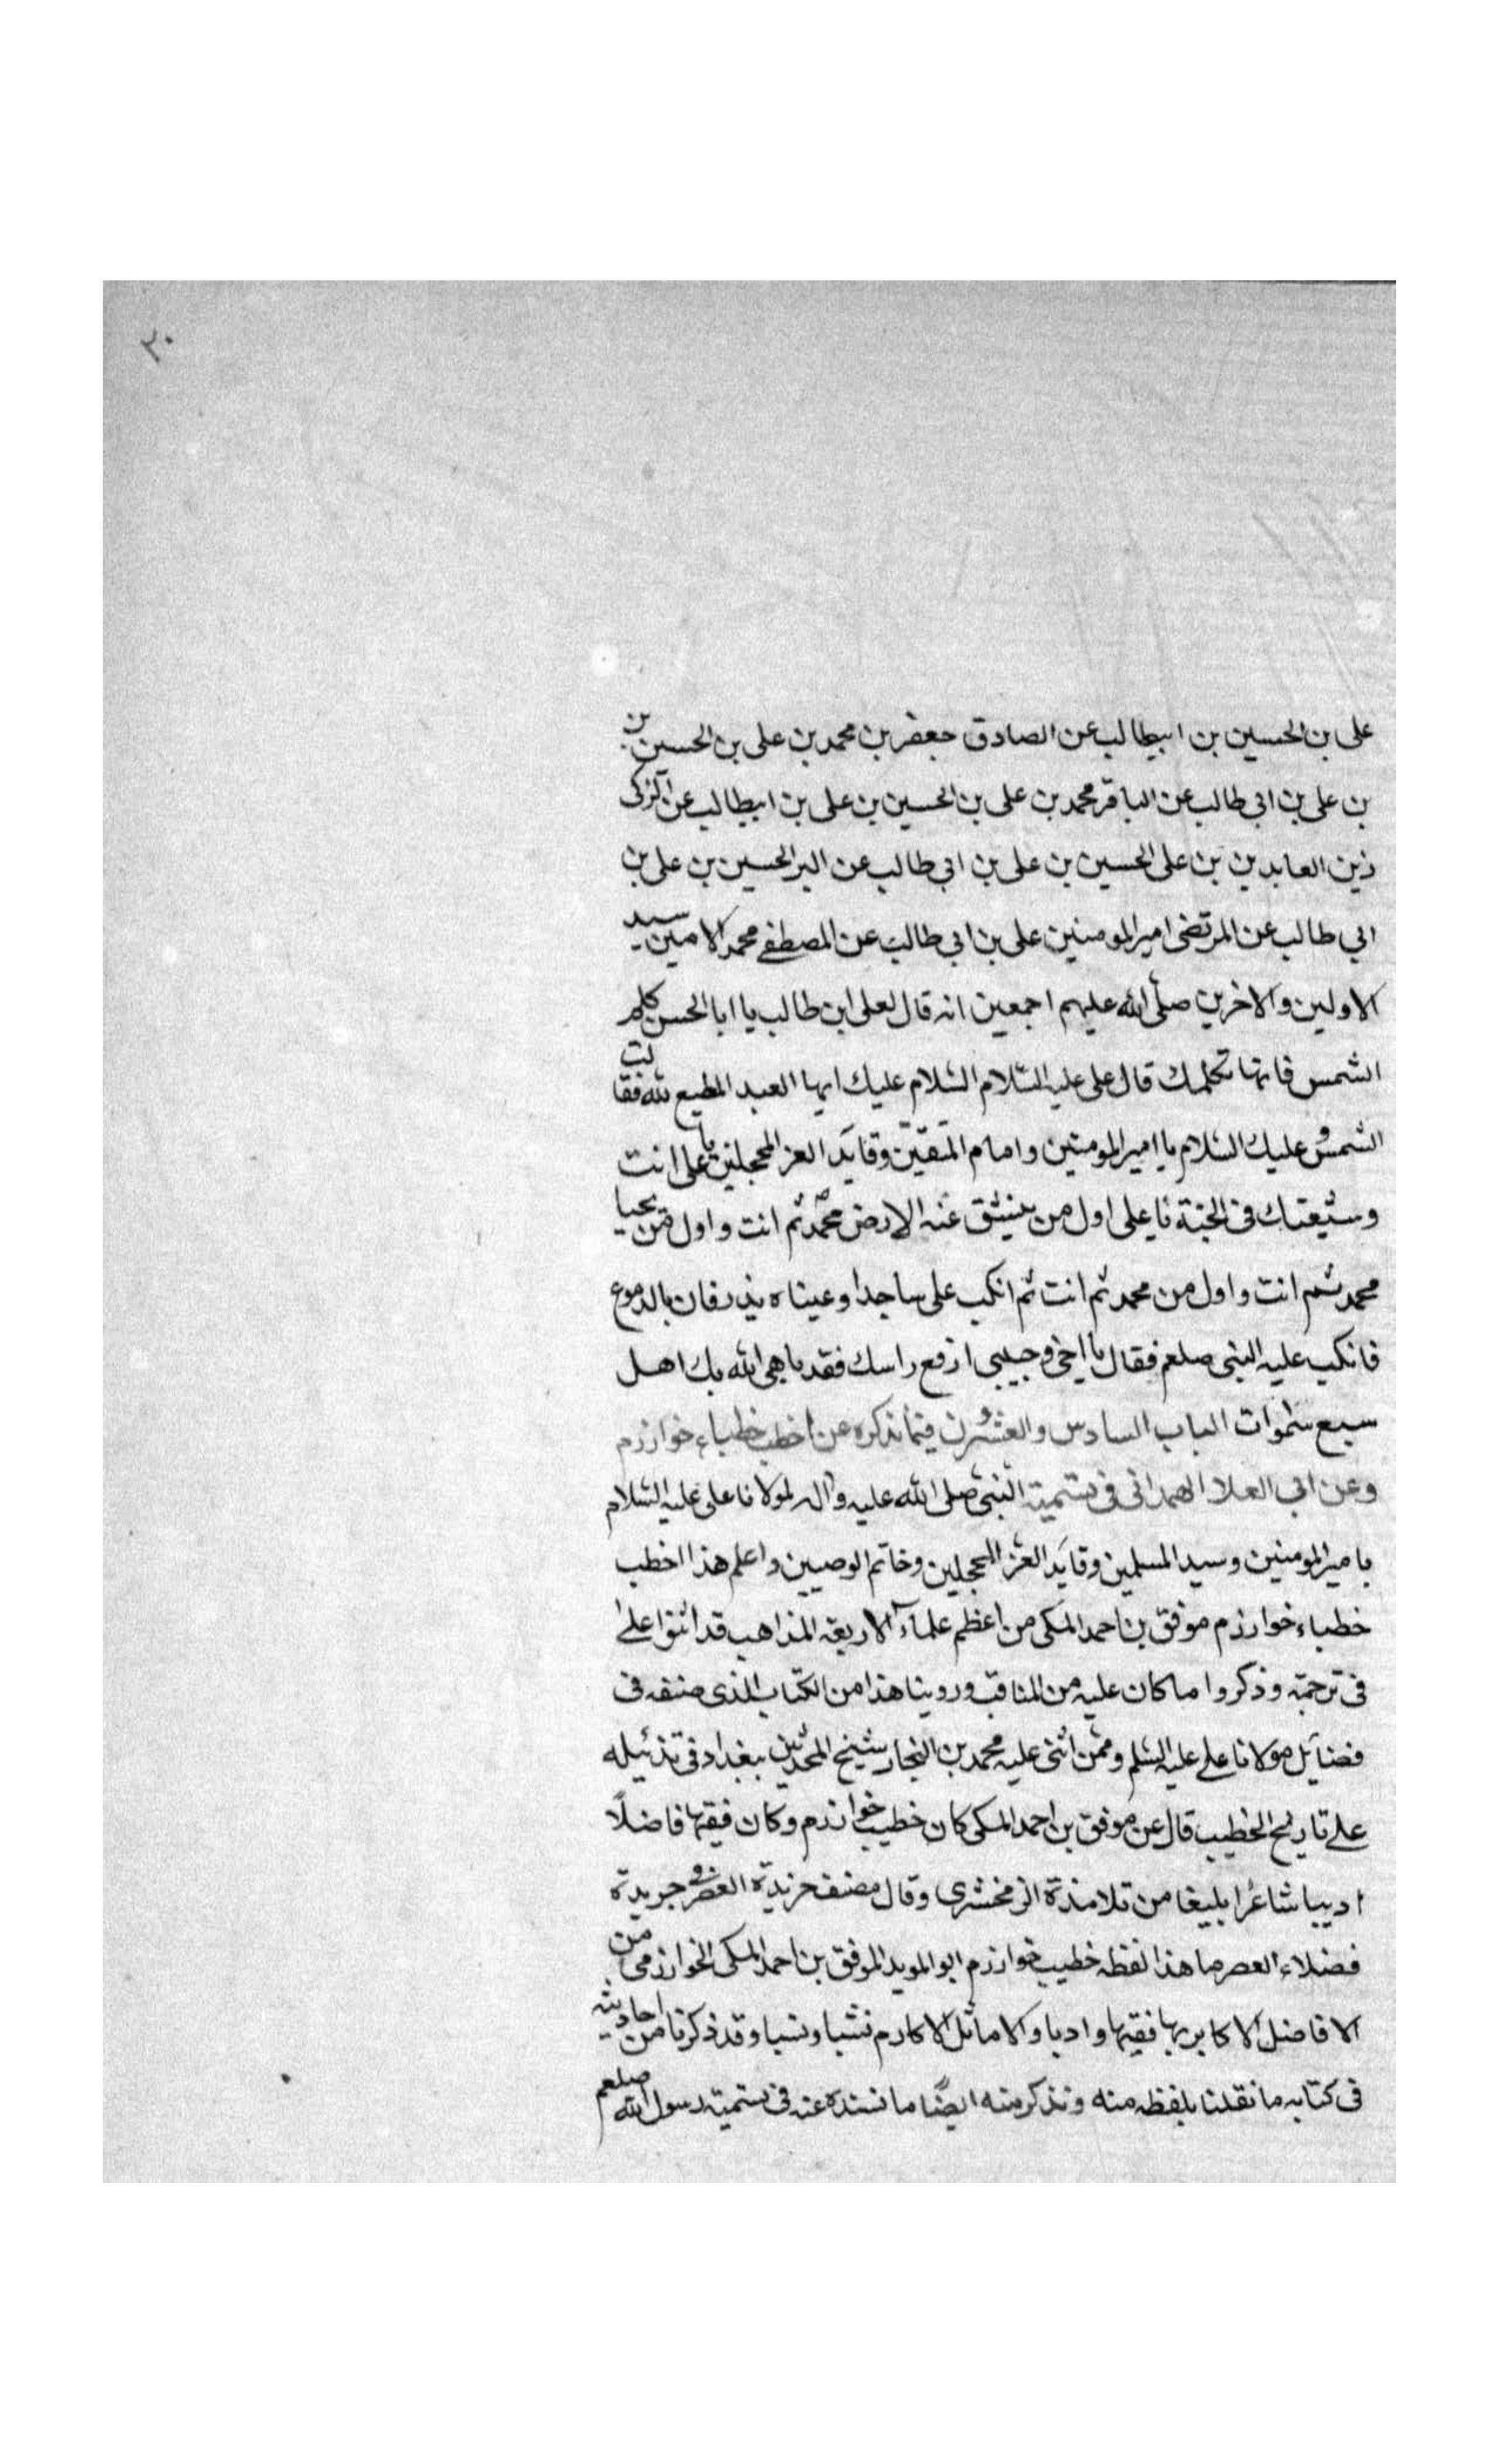 ٢٠
على بن الحسين بن ابيطالب عن الصادق جعفر بن محمد بن على بن الحسين بن
بن على بن ابى طالب عن الباقر محمد بن على بن الحسين بن على بن ابيطالب عن الزكى
زين العابدين بن على الحسين بن على بن ابى طالب عن البر الحسين بن على بن
ابى طالب عن المرتضى امير المومنين على بن ابى طالب عن المصطفے محمد الامين سيد
الاولين والاخرين صلى الله عليهم اجمعين انه قال لعلى ابن طالب يا ابا الحسن كلم
الشمس فانها تكلمك قال على عليه السّلام السّلام عليك ايها العبد المطيع لله فقالت
الشمس وعليك السّلام يا امير المومنين وامام المتقيّن وقايَد العز المحجلين يا على انت
وشيعتك فى الجنة يا على اول من ينشق عنه الارض محمّد ثم انت واول من يحيا
محمد ثم انت واول من محمد ثم انت ثم انكب على ساجدا وعيناه يذرفان بالدموع
فانكب عليه النبى صلعم فقال يا اخى وحبيبى ارفع راسك فقد باهى الله بك اهل
سبع سموات الباب السادس والعشرون فيما نذكره عن اخطب خطباء خوارزم
وعن ابى العلا الهمدانى فى تسمية النبى صلى الله عليه واله لمولانا على عليه السّلام
بامير المومنين وسيد المسلمين وقايَد العز المحجلين وخاتم الوصيين واعلم هذا اخطب
خطباء خوارزم موفق بن احمد المكى من اعظم علماَء الاربعة المذاهب قد اثنوا على
فى ترجمته وذكروا ما كان عليه من المناقب وروينا هذا من الكتاب الذى صنفه فى
فضايَل مولانا على عليه السّلم وممّن اثنى عليه محمد بن النجار شيخ المحدثين ببغداد فى تذئيله
على تاريخ الخطيب قال عن موفق بن احمد المكى كان خطيب خوارزم وكان فقيها فاضلًا
اديبا شاعرا بليغا من تلامذة الزمخشرى وقال مصنف خريدة العصر وجريدة
فضلاء العصر ما هذا لفظه خطيب خوارزم ابو المويد الموفق بن احمد المكى الخوارزمى من
الافاضل الاكابر بها فقيها وادبا والاماثل الاكارم نشبا ونسبا وقد ذكرنا من احاديثه
فى كتابه ما نقلنا بلفظه منه ونذكر منه ايضًا ما نسنده عنه فى تسمية رسول الله صلعم